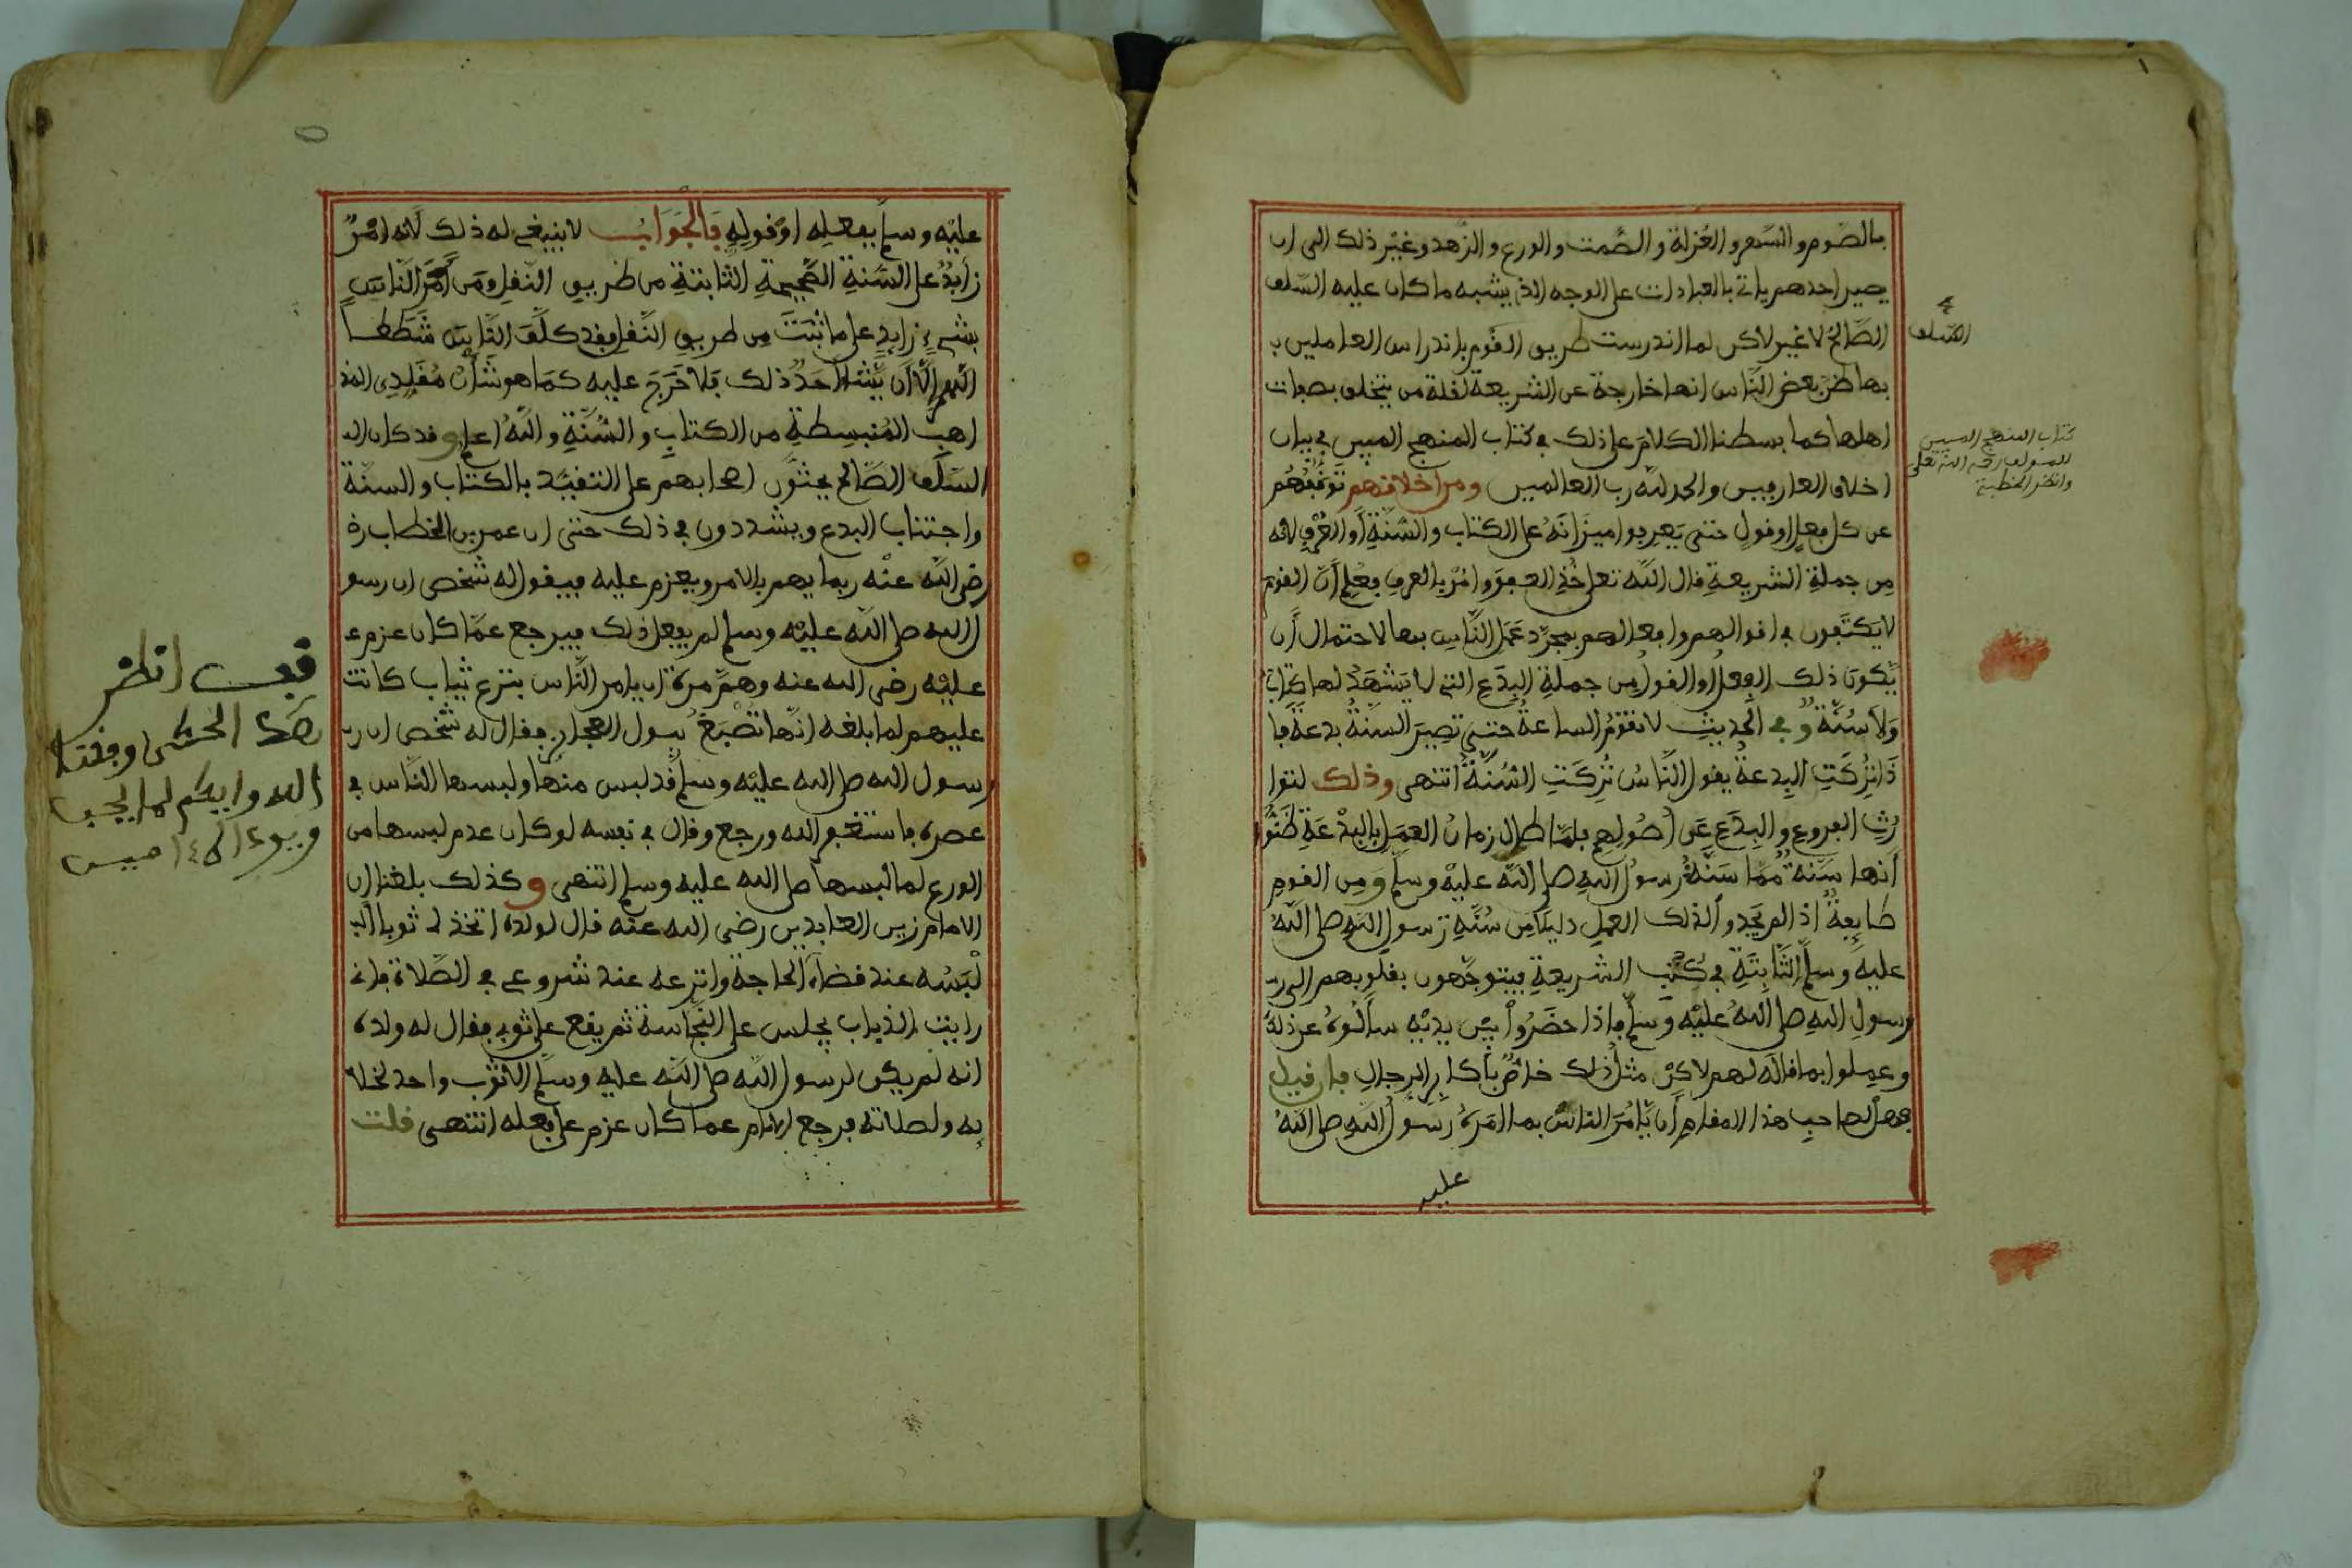 بالصوم والسهر والعزلة والصمت والورع والزهد وغير ذلك الى ان
يصير احدهم ياتي بالعبادات على الوجه الذي يشبه ما كان عليه السلف
الصالح لا غير لاكن لما اندرست طريق القوم باندراس العاملين ب
بها ظن بعض الناس انها خارجة عن الشريعة لقلة من يتخلق بصفات
اهلها كما بسطنا الكلام على ذلك في كتاب المنهج المبين في بيان
اخلاق العارفين والحمد لله رب العالمين ومن اخلاقهم توقفهم
عن كل فعل او قول حتى يعرفوا ميزانه على الكتاب والسنة او العرف لانه
من جملة الشريعة قال الله تعلى خذ العفو وامر بالعرف فعلم ان القوم
لا يكتفون في اقوالهم وافعالهم بمجرد عمل الناس بها لاحتمال ان
يكون ذلك الفعل او القول من جملة البدع التي لا يشهد لها كتاب
ولا سنة وفي الحديث لا تقوم الساعة حتى تصير السنة بدعة فا
ذا تركت البدعة يقول الناس تركت السنة انتهى وذلك لتوا
رث الفروع والبدع عن اصولهم فلما طال زمان العمل بالبدعة ظنوا
انها سنة مما سنه رسول الله صلى الله عليه وسلم ومن القوم
طايفة اذا لم يجدوا لذلك العمل دليلا من سنة رسول الله صلى الله
عليه وسلم الثابتة في كتب الشريعة فيتوجهون بقلوبهم الى ر
رسول الله صلى الله عليه وسلم فاذا حضروا بين يديه سالوه عن ذلك
وعملوا بما قاله لهم لاكن مثل ذلك خاص باكابر الرجال فان قيل
فهل لصاحب هذا المقام ان يامر الناس بما امره رسول الله صلى الله
عليه
السلف
كتاب المنهج المبين
للمولف رحمه الله تعلى
وانظر الخطبة
عليه وسلم بفعله او قوله فالجواب لا ينبغي له ذلك لانه امر
زايد على السنة الصحيحة الثابتة من طريق النقل ومن امر الناس
بشيء زايد على ما ثبت من طريق النقل فقد كلف الناس شططا
اللهم الا ان يشاء احد ذلك فلا حرج عليه كما هو شان مقلدي المذ
اهب المستنبطة من الكتاب والسنة والله اعلم وقد كان ال
السلف الصالح يحثون اصحابهم على التقيد بالكتاب والسنة
واجتناب البدع ويشددون في ذلك حتى ان عمر بن الخطاب ر
رضي الله عنه ربما يهم بالامر ويعزم عليه فيقول له شخص ان رسو
ل الله صلى الله عليه وسلم لم يفعل ذلك فيرجع عما كان عزم ع
عليه رضي الله عنه وهم مرة ان يامر الناس بنزع ثياب كانت
عليهم لما بلغه انها تصبغ ببول العجايز فقال له شخص ان ر
رسول الله صلى الله عليه وسلم قد لبس منها ولبسها الناس في
عصره فاستغفر الله ورجع وقال في نفسه لو كان عدم لبسها من
الورع لما لبسها صلى الله عليه وسلم انتهى وكذلك بلغنا ان
الامام زين العابدين رضي الله عنه قال لولده اتخذ لي ثوبا ال
لبسه عند قضاء الحاجة وانزعه عند شروعي في الصلاة فاني
رايت الذباب يجلس على النجاسة ثم يقع على ثوبي فقال له ولده
انه لم يكن لرسول الله صلى الله عليه وسلم الا ثوب واحد لخلا
يه ولصلاته فرجع الامام عما كان عزم على فعله انتهى قلت
قف انظر
الله واياكم لما يحب